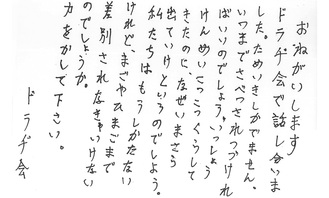 おねがいします
ドラヂ会で話し合いま
した。ためいきしかでません。
いつまでさべつされつづけれ
ばいいのでしょう。いっしょう
けんめいにこつこつくらして
きたのに、なぜいまさら
出ていけというのでしょう。
私たちはもうしかたない
けれど、まごやひまごまで
差別されなきゃいけない
のでしょうか。
力をかして下さい。
ドラヂ会